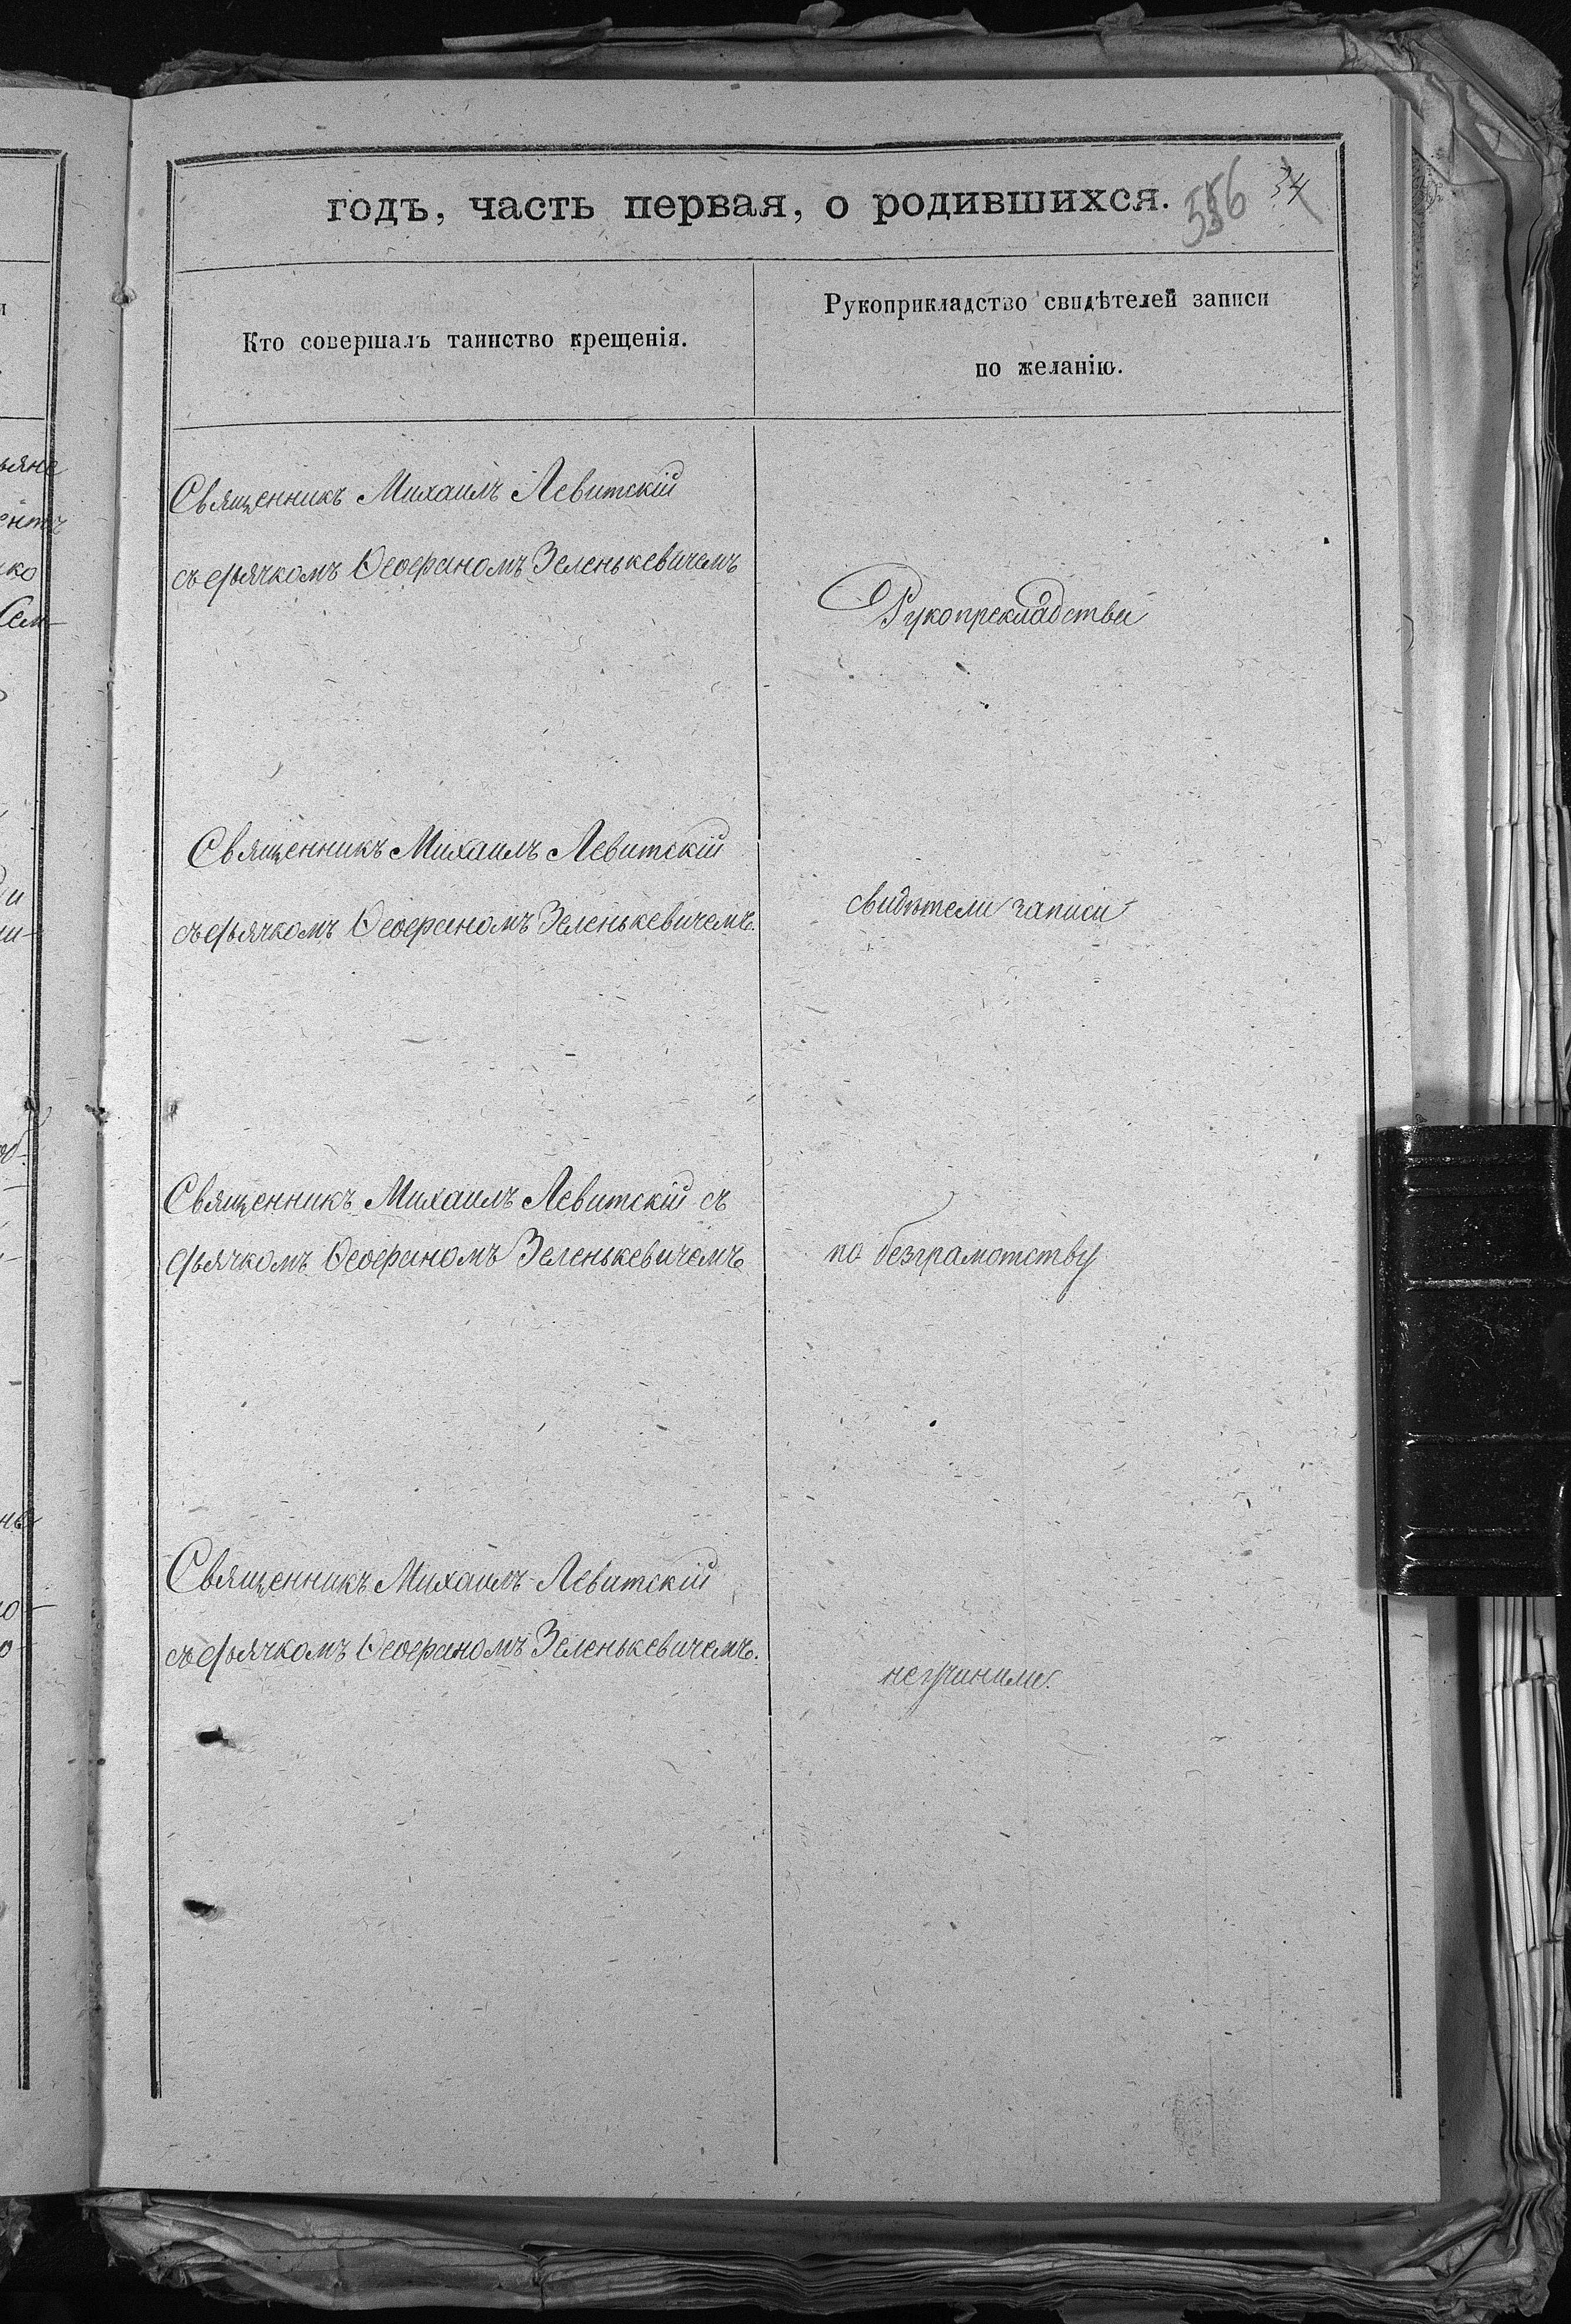 годъ, часть первая, о родившихся.
556 34
Кто совершалъ таинство крещенія.
Рукоприкладство свидѣтелей записи
по желанію.
Священникъ Михаилъ Левитскій
съ дьячкомъ Ѳеофаномъ Зеленькевичемъ
Рукопрекладства
Священникъ Михаилъ Левитскій
съ дьячкомъ Ѳеофаномъ Зеленькевичемъ.
свидѣтели записи
Священникъ Михаилъ Левитскій съ
дьячкомъ Ѳеофаномъ Зеленькевичемъ
по безграмотству
Священникъ Михаилъ Левитскій
съ дьячкомъ Ѳеофаномъ Зеленькевичемъ.
неучинили.